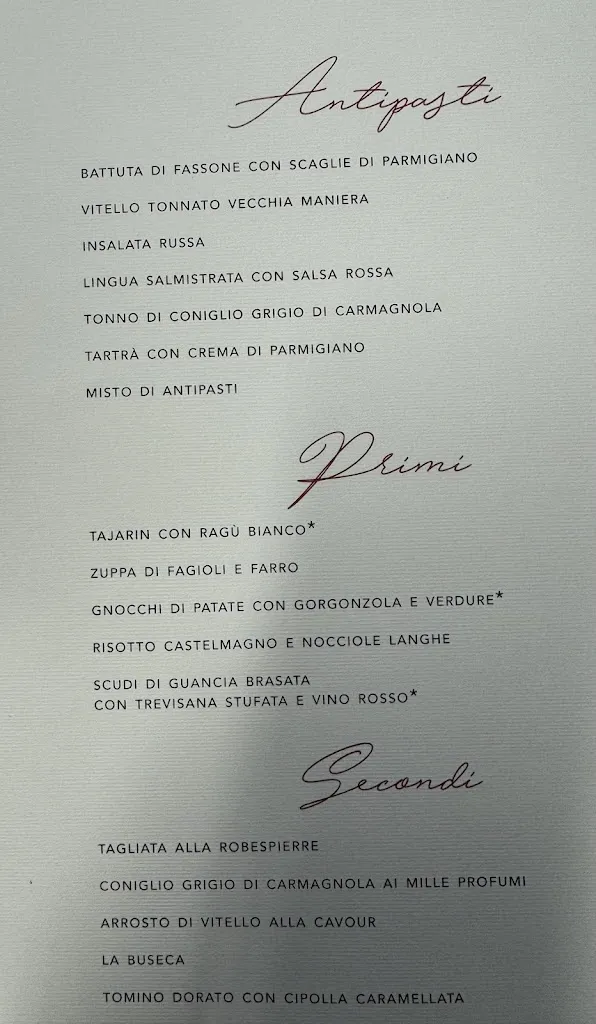 Antipasti
BATTUTA DI FASSONE CON SCAGLIE DI PARMIGIANO
VITELLO TONNATO VECCHIA MANIERA
INSALATA RUSSA
LINGUA SALMISTRATA CON SALSA ROSSA
TONNO DI CONIGLIO GRIGIO DI CARMAGNOLA
TARTRÀ CON CREMA DI PARMIGIANO
MISTO DI ANTIPASTI
Primi
TAJARIN CON RAGÙ BIANCO*
ZUPPA DI FAGIOLI E FARRO
GNOCCHI DI PATATE CON GORGONZOLA E VERDURE*
RISOTTO CASTELMAGNO E NOCCIOLE LANGHE
SCUDI DI GUANCIA BRASATA
CON TREVISANA STUFATA E VINO ROSSO*
Secondi
TAGLIATA ALLA ROBESPIERRE
CONIGLIO GRIGIO DI CARMAGNOLA AI MILLE PROFUMI
ARROSTO DI VITELLO ALLA CAVOUR
LA BUSECA
TOMINO DORATO CON CIPOLLA CARAMELLATA